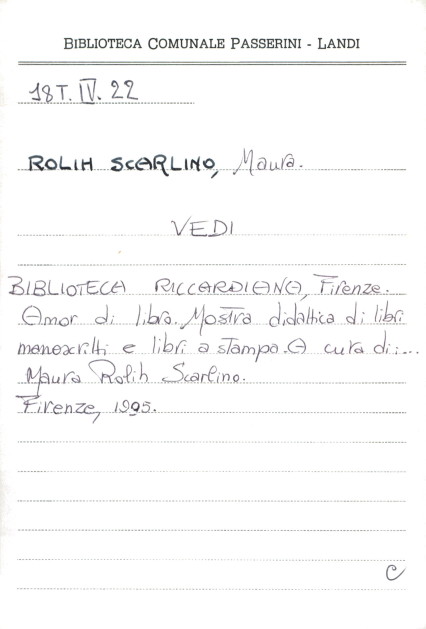 BIBLIOTECA COMUNALE PASSERINI - LANDI
18T. IV. 22
ROLIH SCARLINO, Maura.
VEDI
BIBLIOTECA RICCARDIANA, Firenze.
Amor di libro. Mostra didattica di libri
manoscritti e libri a stampa. A cura di:...
Maura Rolih Scarlino.
Firenze, 1985.
C